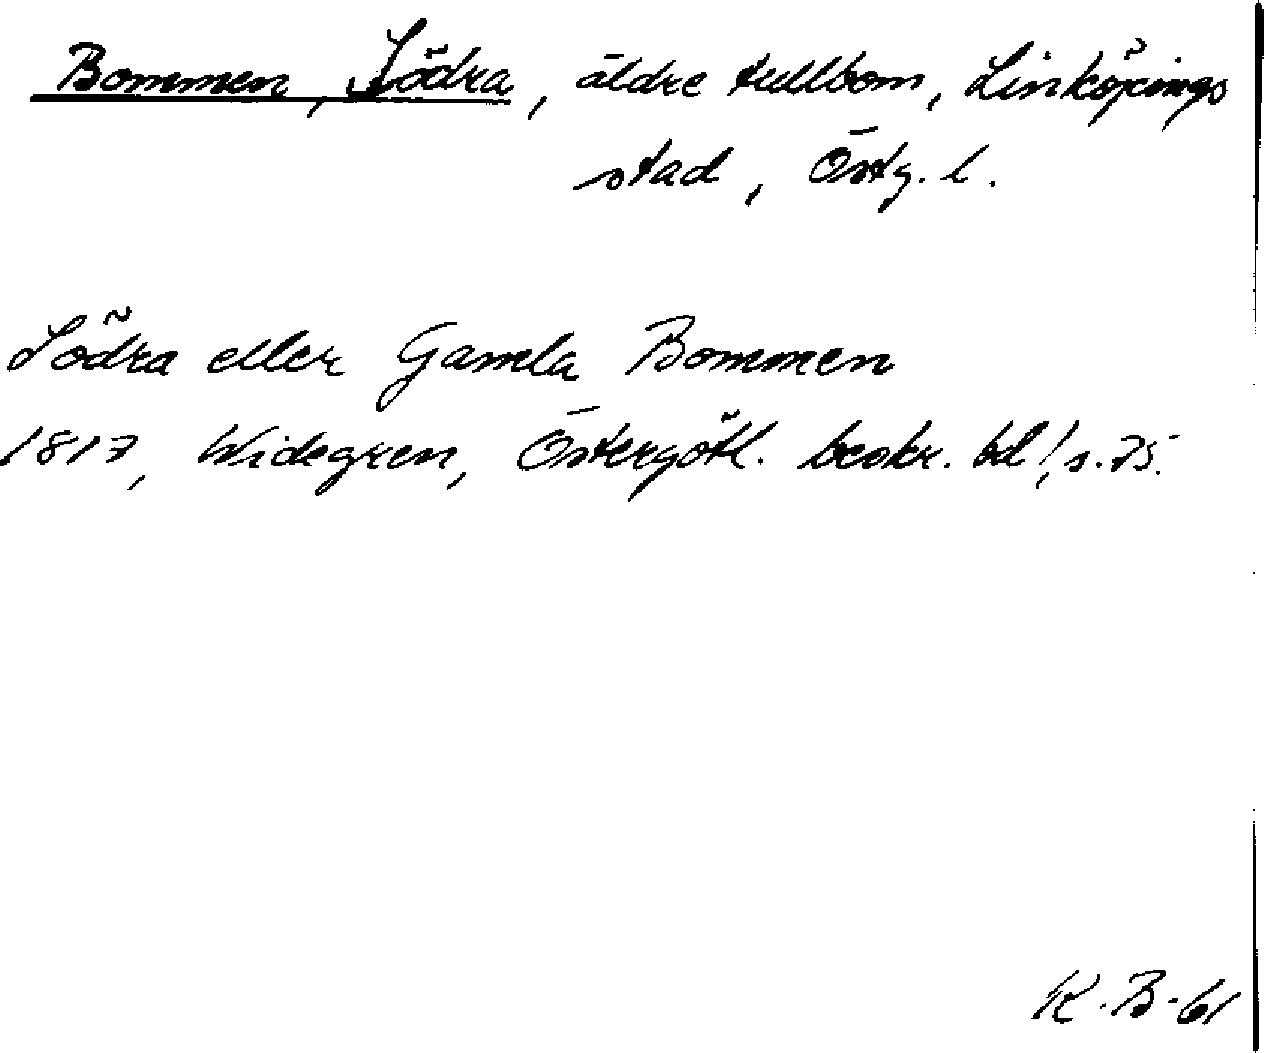 Bommen, Södra, äldre tullbom, Linköpings
stad, Östg. l.
Södra eller Gamla Bommen
1817, Widegren, Östergötl. beskr. bd 1, s. 75.
K. B-61